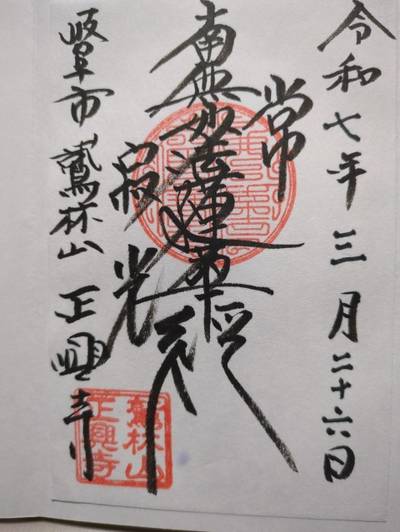 令和七年三月二十六日
常
南無妙法蓮華経
寂光
岐阜市鷲林山正興寺
鷲林山
正興寺